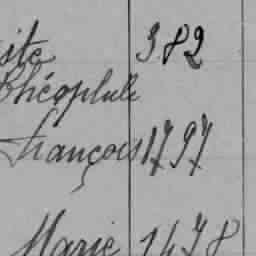 ite 382
Théophile
François 1797
Marie 1478